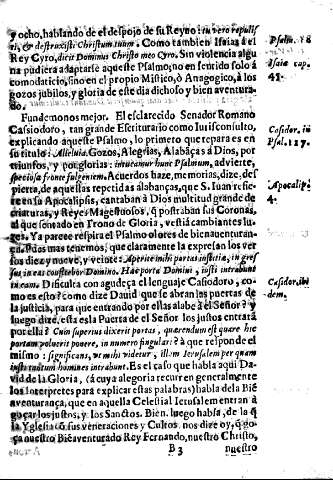 y ocho, hablando de el despojo de su Reyno: tu vero repulis-
ti, & destruxisti Christum tuum. Como tambien Isaias el
Rey Cyro, dicit Dominus Christo meo Cyro. Sin violencia algu
na pudiera adaptarse aqueste Psalmo, no en sentido solo á
comodaticio, sino en el propio Mistico, ò Anagogico, à los
gozos, jubilos, y gloria de este dia dichoso y bien aventu-
rado.
Fundemonos mejor. El esclarecido Senador Romano
Casiodoro, tan grande Escriturario como Iurisconsulto,
explicando aqueste Psalmo, lo primero que repara es en
su titulo: Alleluia. Gozos, Alegrias, Alabãças à Dios, por
triunfos, y por glorias: inueamur hunc Psalmum, advierte,
speciosa fronte fulgentem. Acuerdos haze, memorias, dize, des
pierta, de aquestas repetidas alabanças, que S. Iuan refie
re en su Apocalipsis, cantaban à Dios multitud grande de
criaturas, y Reyes Magestuosos, q̃ postraban sus Coronas,
al que sentado en Trono de Gloria, vestia cambiantes lu-
zes. Ya parece respira el Psalmo olores de bienauenturan-
ça. Pues mas tenemos, que claramente la expresan los ver
sos diez y nueve, y veinte: Aperite mihi portas iustitiæ, in gres
sus in eas confitebor Domino. Hæc porta Domini, iusti intrabunt
in eam. Disculta con agudeça el lenguaje Casiodoro, co-
mo es esto? como dize Dauid que se abran las puertas de
la justicia, para que entrando por ellas alabe à el Señor? y
luego dize, esta es la Puerta de el Señor los justos entrarà
por ella? Cum superius dixerit portas, querendum est quare hic
portam poluerit ponere, in numero singulari? à que responde el
mismo: significans, ut mihi videtur, illam Ierusalem per quam
iustorũ tantum homines intrabunt. Es el caso que habla aqui Da
vid de la Gloria, (à cuya alegoria recurren generalmente
los Interpretes para explicar estas palabras) habla de la Biẽ
aventurança, que en aquella Celestial Ierusalem entran à
goçar los justos, y los Santos. Bien. luego habla, de la q̃
la Yglesia cõ sus veneraciones y Cultos, nos dize oy, q̃ go-
ça nuestro Biẽaventurado Rey Fernando, nuestro Christo,
B 3 nuestro
Psalm. 88
Isaiæ cap.
45.
Casidor. in
Psal. 117.
Apocalip.
4.
Casidor. ibi
dem.